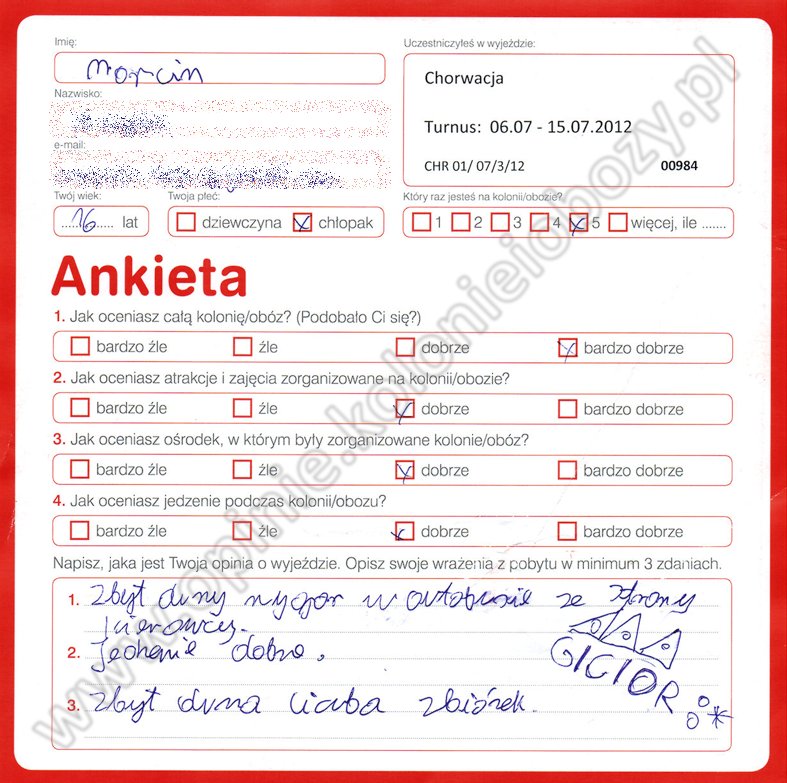 Imię:
Marcin
Nazwisko:
e-mail:
Twój wiek:
16 lat
Twoja płeć:
dziewczyna chłopak
Uczestniczyłeś w wyjeździe:
Chorwacja
Turnus: 06.07 - 15.07.2012
CHR 01/ 07/3/12 00984
Który raz jesteś na kolonii/obozie?
1 2 3 4 5 więcej, ile .......
Ankieta
1. Jak oceniasz całą kolonię/obóz? (Podobało Ci się?)
bardzo źle źle dobrze bardzo dobrze
2. Jak oceniasz atrakcje i zajęcia zorganizowane na kolonii/obozie?
bardzo źle źle dobrze bardzo dobrze
3. Jak oceniasz ośrodek, w którym były zorganizowane kolonie/obóz?
bardzo źle źle dobrze bardzo dobrze
4. Jak oceniasz jedzenie podczas kolonii/obozu?
bardzo źle źle dobrze bardzo dobrze
Napisz, jaka jest Twoja opinia o wyjeździe. Opisz swoje wrażenia z pobytu w minimum 3 zdaniach.
1. Zbyt duży rygor w autobusie ze strony
kierowcy.
2. Jedzenie dobre.
GICIOR
3. Zbyt duża liczba zbiórek.
www.opinie.kolonieiobozy.pl